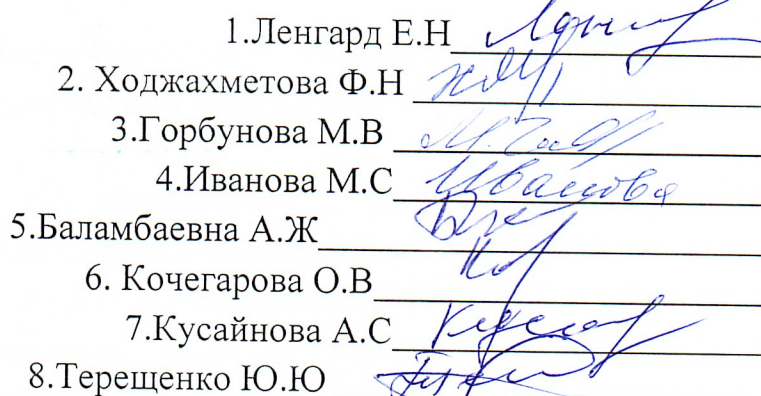 1.Ленгард Е.Н
2. Ходжахметова Ф.Н
3.Горбунова М.В
4.Иванова М.С Иванова
5.Баламбаевна А.Ж
6. Кочегарова О.В
7.Кусайнова А.С
8.Терещенко Ю.Ю